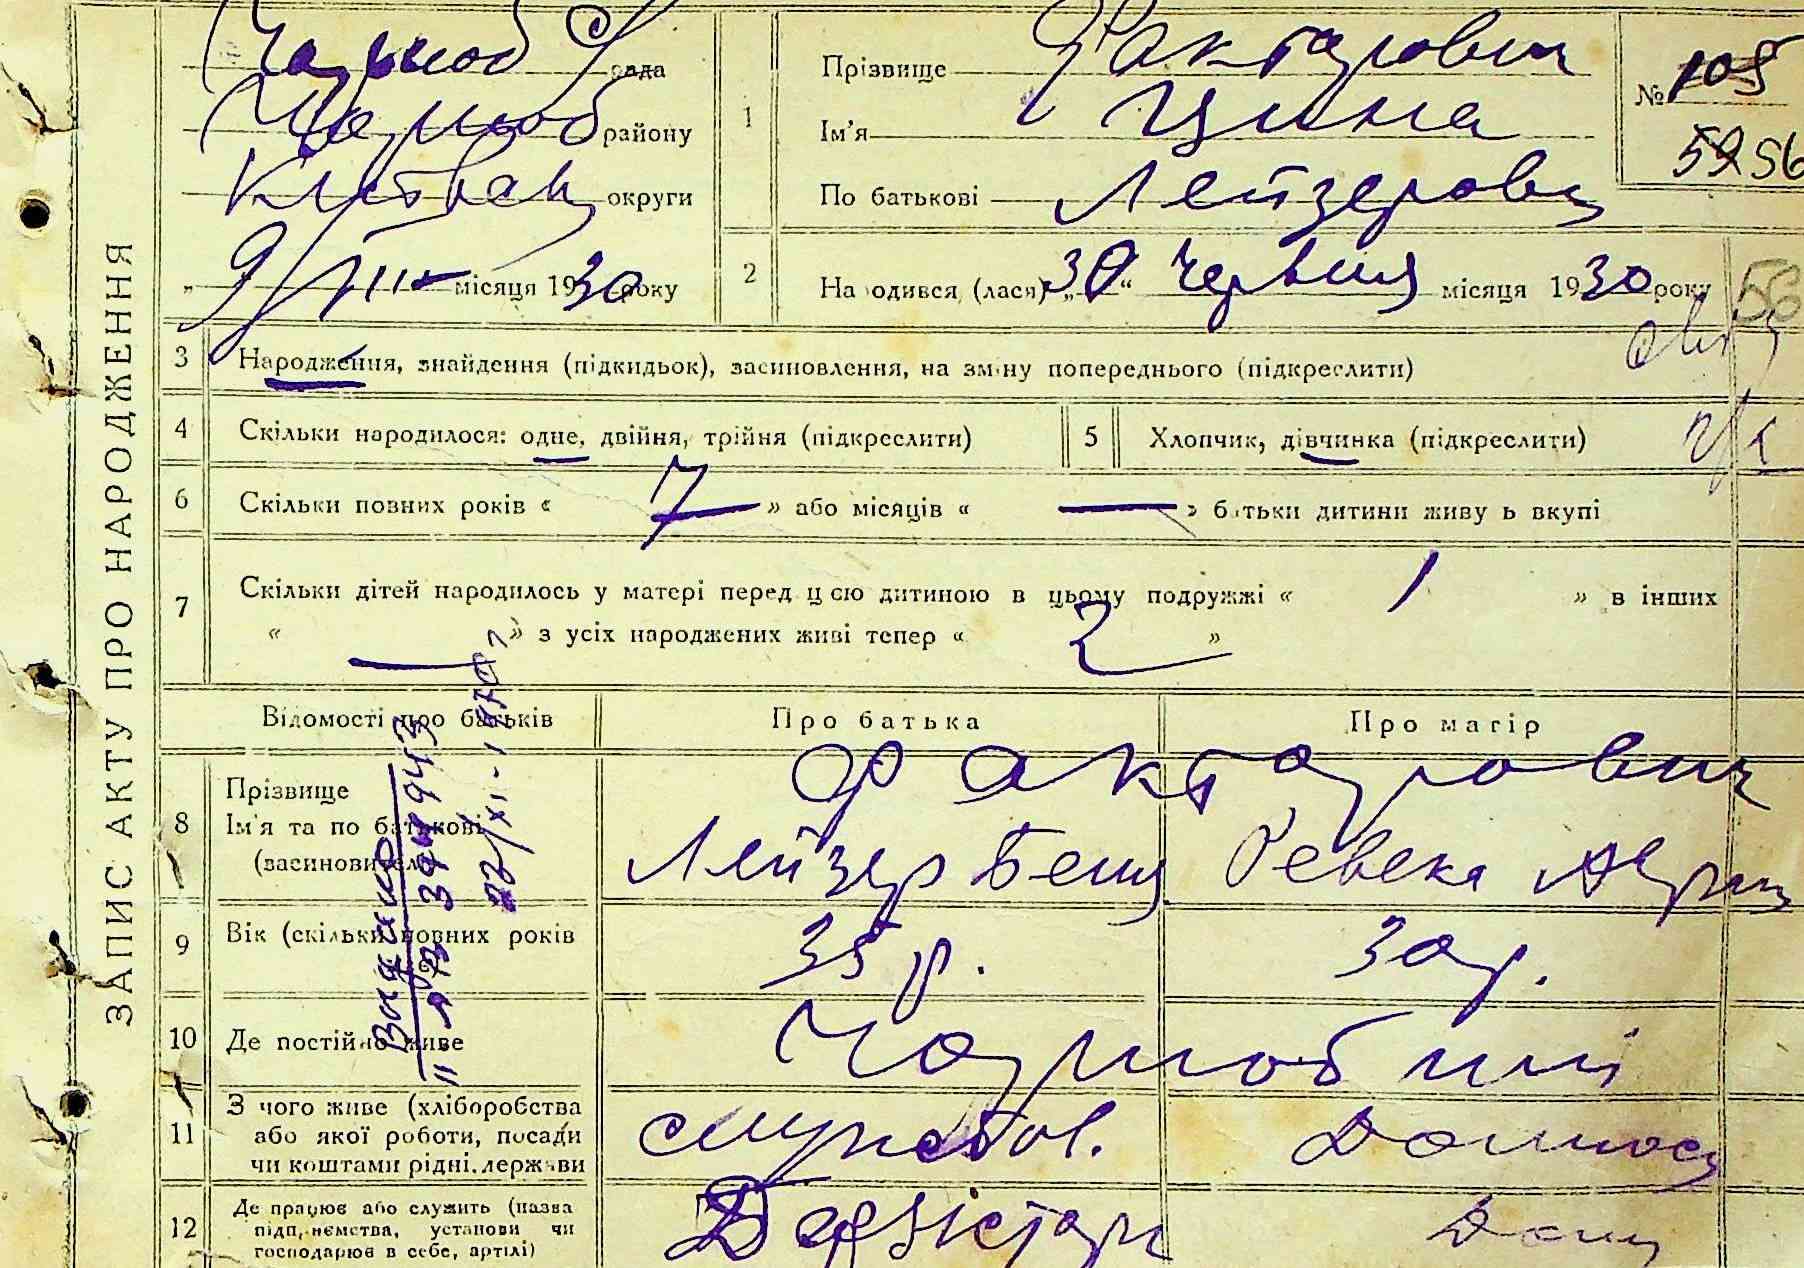 ЗАПИС АКТУ ПРО НАРОДЖЕННЯ
рада
району
округи
9/VIII місяця 1930 року
1
Прізвище Фактарович
Ім'я Цина
По батькові Лейзеровн
№ 105
5256
2
Народився (лася) „30“ червня місяця 1930 року
56
3 Народження, знайдення (підкидьок), засиновлення, на зміну попереднього (підкреслити)
4 Скільки народилося: одне, двійня, трійня (підкреслити)
5 Хлопчик, дівчинка (підкреслити)
6 Скільки повних років « 7 » або місяців « — » батьки дитини живуть вкупі
7 Скільки дітей народилось у матері перед цією дитиною в цьому подружжі « 1 » в інших
« — » з усіх народжених живі тепер « 2 »
Відомості про батьків
Про батька
Про матір
8 Прізвище
Ім'я та по батькові
(засиновител
Фактарович
Лейзер Бенц
Ревека
9 Вік (скільки повних років
35 р.
30 р.
10 Де постійно живе
Чорнобилі
11 З чого живе (хліборобства
або якої роботи, посади
чи коштами рідні, держави
службов.
Домгосп
12 Де працює або служить (назва
підприємства, установи чи
господарює в себе, артілі)